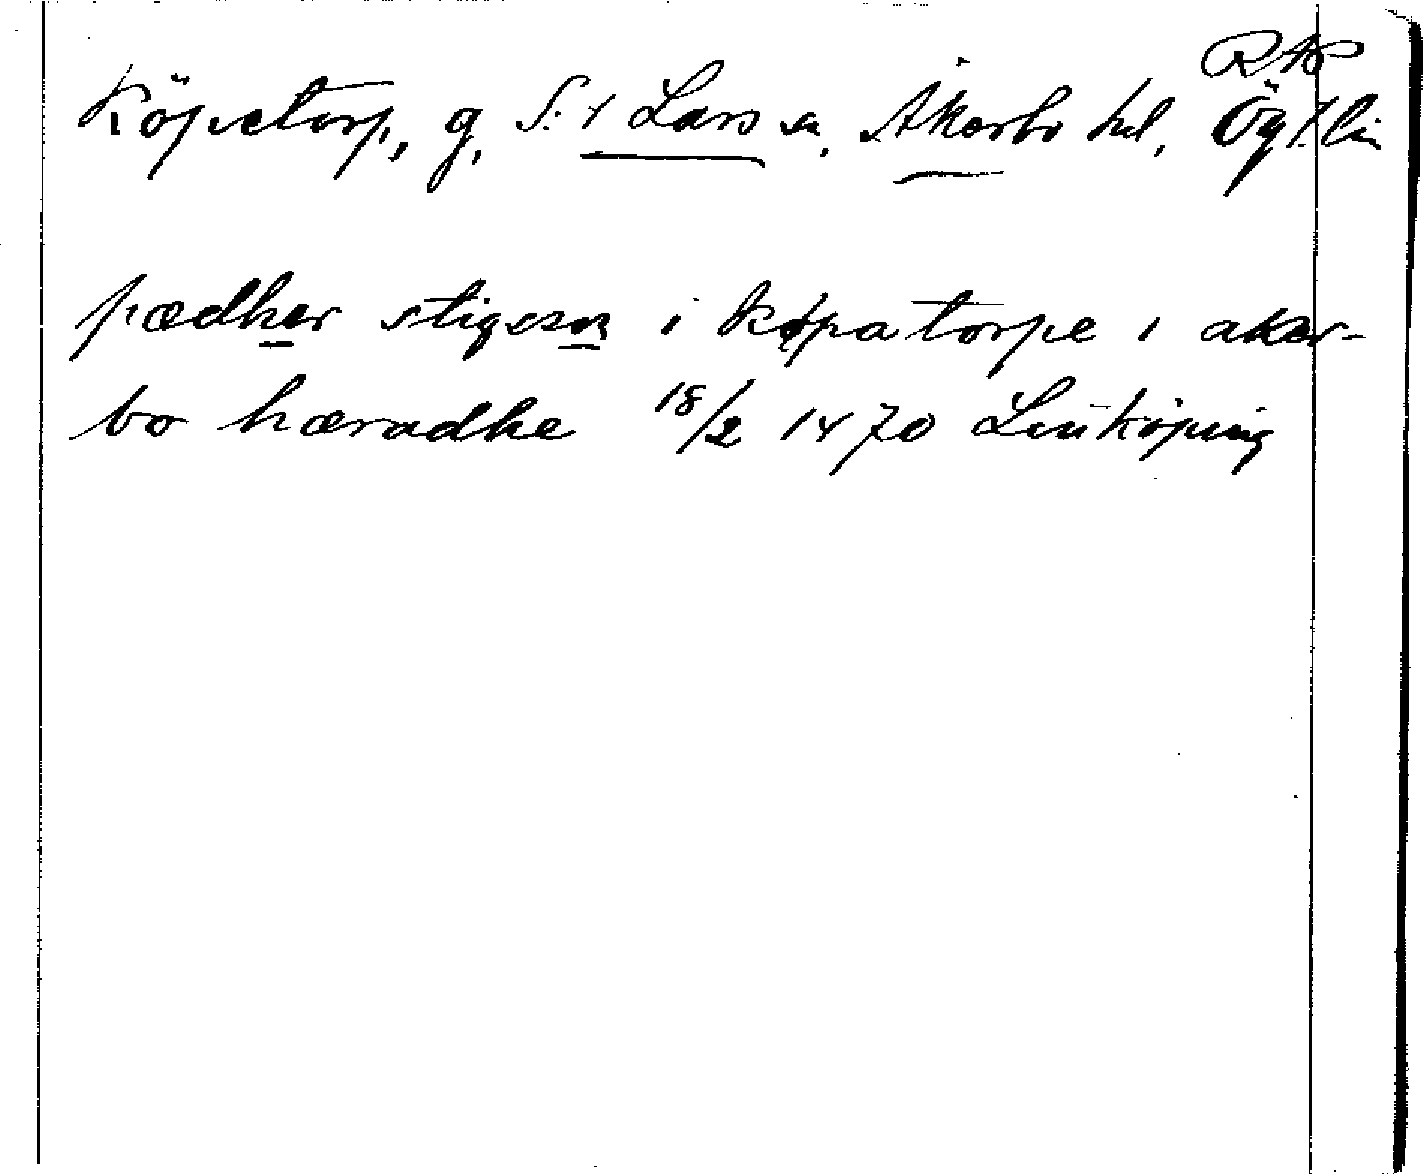 RAP
Köpetorp, g, S:t Lars sn, Åkerbo hd, Ögtl. län
pædher stigeson i køpa torpe i aker-
bo hæradhe 18/2 1470 Linköping